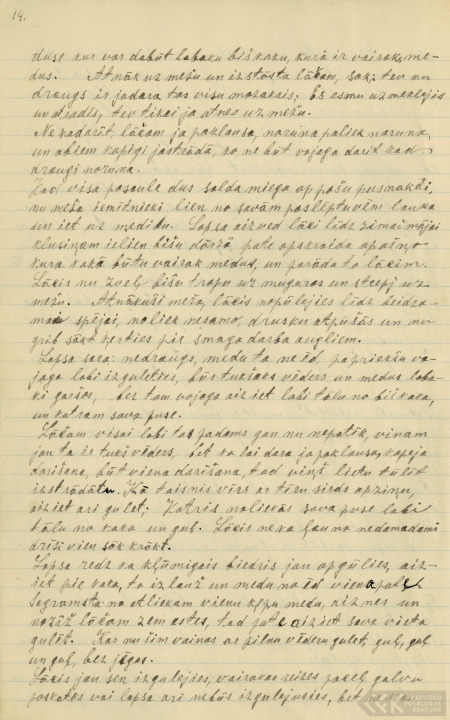 14.
duse kur var dabūt labaku bišķaku, kurā ir vairak me-
dus. Atnāk uz mežu un izstāsta lāčam, sak: tev nu
draugs ir jadara tas visu mazakais; Es esmu uzmeklejis
un atradis, tev tikai ja atnes uz mežu.
Ne kadarīt, lāčam ja paklausa, noruna paliek noruna,
un abiem kopigi jastrādā, ko ne būt vajaga darit kad
draugi noruna.
Kad visa pasaule dus salda miega ap pašu pusnakti,
nu meža iemitnieki lien no savām paslēptuvēm laukā
un iet uz medibu. Lapsa aizved lāci līdz zināmai mājai
klusiņam ielien bišu dārzā pate apskraida upaiņo
kura kakā būtu vairak medus, un parāda to lācim.
Lācis nu zveļ bišu tropu uz muguras un steepj uz
mežu. Atnākuši mežā, lācis nopūlejies līdz beidza-
mai spējai, noliek nesamo, drusku atpūšās un nu
grib sākt ķerties pie smaga darba augļiem.
Lapsa saka: nedraugs, medu ta ne ēd, papriekšu va-
jaga labi izguletties, būs tukšaks vēders un medus laba-
ki garšos, bet tam vajaga aiziet labi tālu no biškaka,
un katram sava puse.
Lāčam visai labi tas padoms gan nu nepatīk, viņam
jau ta ir tukš vēders, bet ko lai dara ja paklausa, kopeja
darišana, būt viena darišana, tad viņš lietu tūlīt
izstrādātu. Kā taisnis vīrs ar tīru sirds apziņu,
aiziet ari gulet. Katris nolienās sava puse labi
tālu no kaka un guļ. Lācis neka ļauna nedomadami
drīši vien sāk krākt.
Lapsa redz ka kļūmigais biedris jau apgūlies, aiz-
iet pie kaka, to izlauž un medu no ēd viena pate
Sagramsta no atliekam vienu ķēpu medu, aiznes un
noziž lāčam zem astes, tad pate aiziet sava vieta
gulēt. Kas nu šim vainas ar pilnu vēderu gulet, guļ, guļ
un guļ, bez jēgas.
Lācis jau sen izgulejies, vairakas reises paceļ galvu
paskatas vai lapsa ari nebūs izgulejusies, bet ne ka